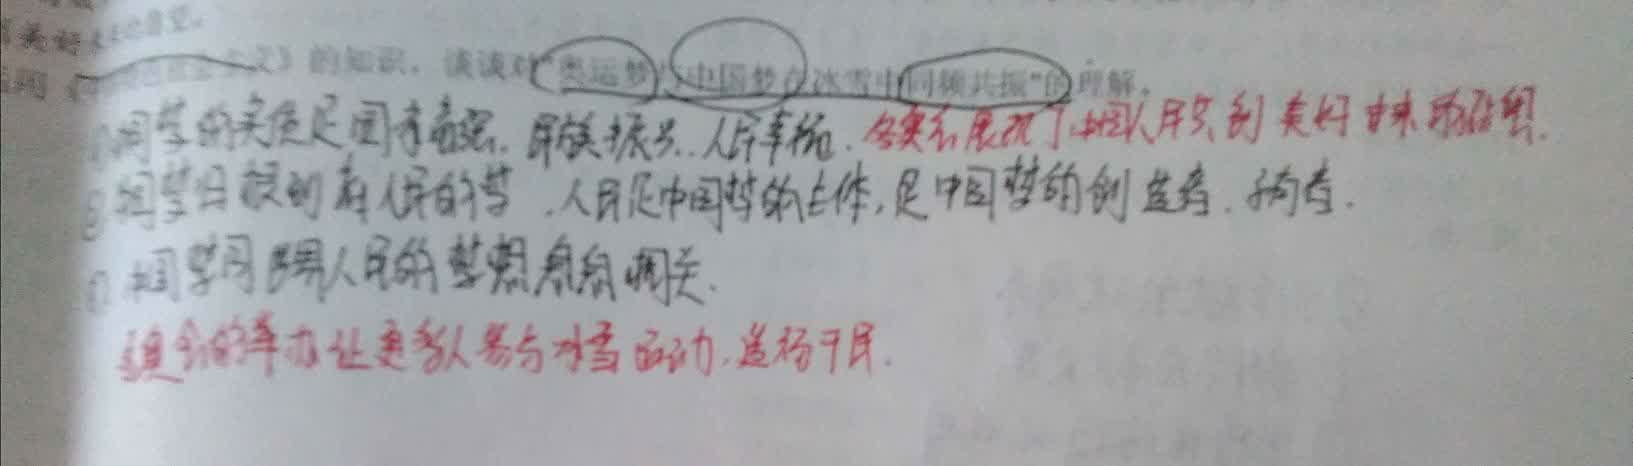 美好
》的知识，谈谈对“奥运梦”“中国梦在冰雪中同频共振”的理解。
①中国梦的实质是国家富强、民族振兴、人民幸福。冬奥会展现了中国人民对美好未来的
②中国梦归根到底是人民的梦，人民是中国梦的主体，是中国梦的创造者、享有者。
中国梦同世界人民的梦想息息相关。
奥会的举办让更多人参与冰雪运动，造福于民。